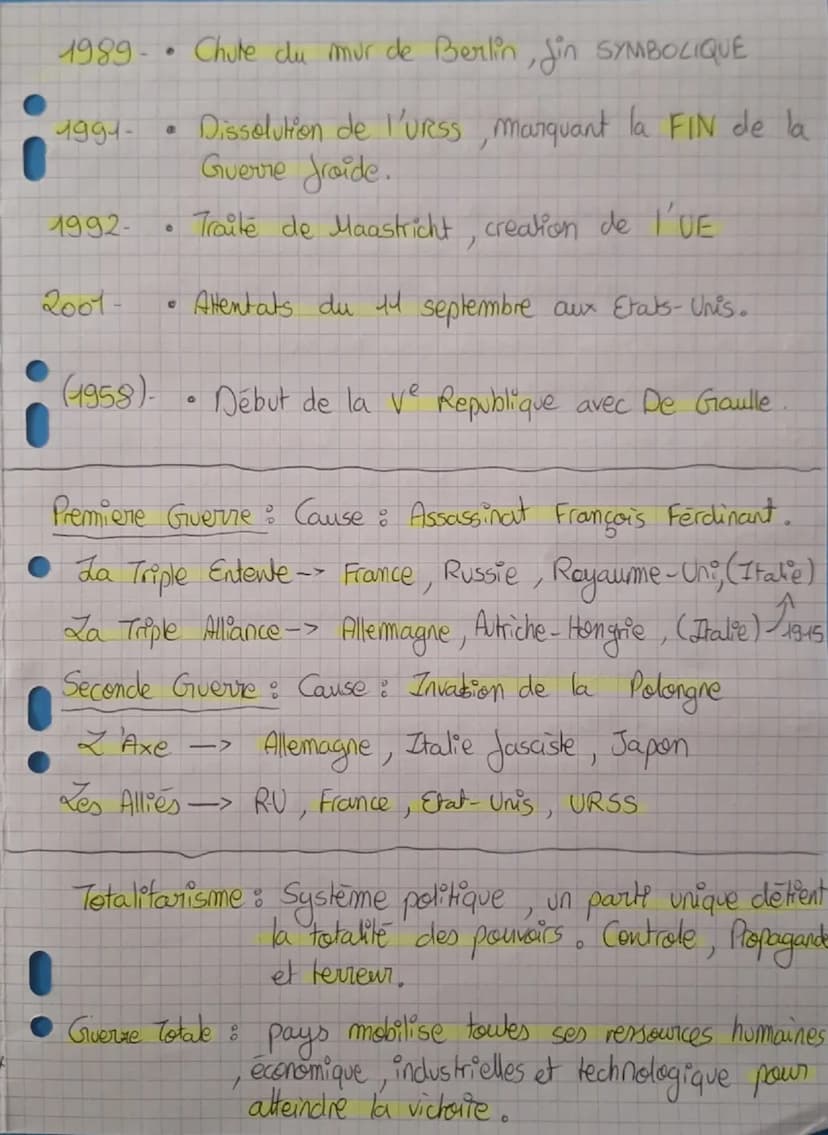 1989- • Chute du mur de Berlin, fin SYMBOLIQUE
1991- • Dissolution de l'URSS, marquant la FIN de la
Guerre froide.
1992- • Traité de Maastricht, creation de l'UE
2001- • Attentats du 11 septembre aux Etats-Unis.
(1958)- • Début de la Ve Republique avec De Gaulle.
Premiere Guerre : Cause : Assassinat François Ferdinant.
La Triple Entente -> France, Russie, Royaume-Uni, (Italie)
La Triple Alliance -> Allemagne, Autriche-Hongrie, (Italie) 1915
Seconde Guerre : Cause : Invasion de la Polongne
L'Axe -> Allemagne, Italie fasciste, Japon
Les Alliés -> RU, France, Etat-Unis, URSS
Totalitarisme : Système politique, un parti unique détient
la totalité des pouvoirs. Controle, Propagande
et terreur.
Guerre Totale : pays mobilise toutes ses ressources humaines
, économique, industrielles et technologique pour
atteindre la victoire.